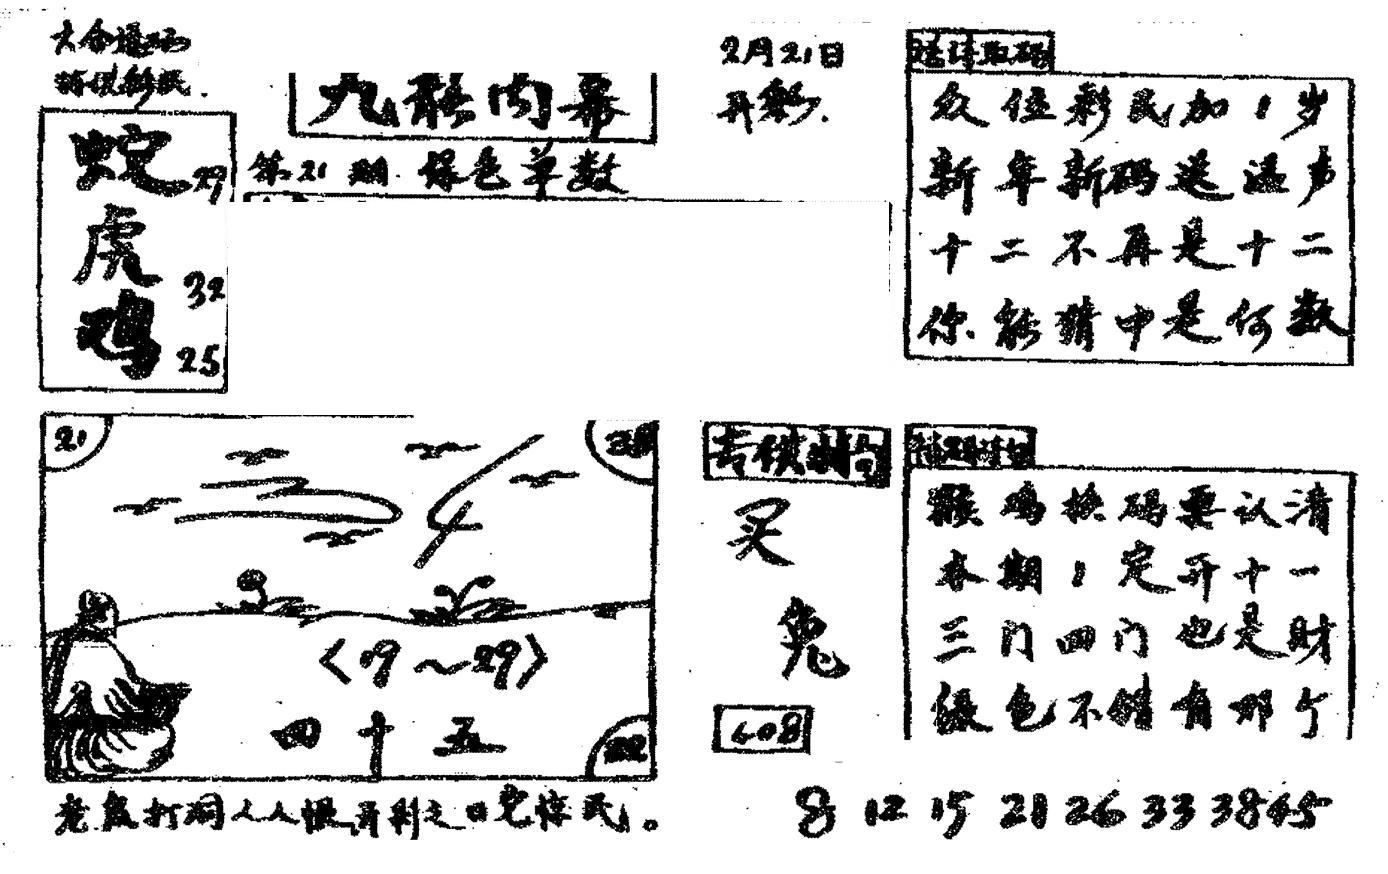 九龙内幕
第21期 绿色单数
2月21日
开彩.
蛇 29
虎 32
鸡 25
众位彩民加1岁
新年新码送温声
十二不再是十二
你能猜中是何数
21
〈19～29〉
四十五
22
买
兔
408
猴鸡换码要认清
本期1定开十一
三门四门也是财
绿色不错有那个
老鼠打洞人人恨 开利之日 惊民。
8 12 15 21 26 33 38 45